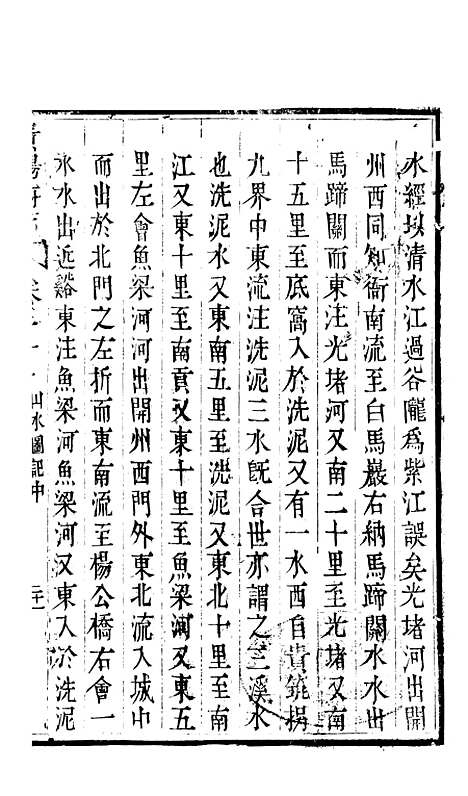 水經㠯清水江過谷隴爲紫江誤矣光堵河出開
州西同知衙南流至白馬巖右納馬蹄關水水出
馬蹄關而東注光堵河又南二十里至光堵又南
十五里至底窩入於洗泥又有一水西自貴筑拐
九界中東流注洗泥三水旣合世亦謂之三溪水
也洗泥水又東南五里至洗泥又東北十里至南
江又東十里至南貢又東十里至魚梁河又東五
里左會魚梁河河出開州西門外東北流入城中
而出於北門之左折而東南流至楊公橋右會一
水水出近谿東注魚梁河魚梁河又東入於洗泥
貴陽府志 卷三十 山水圖記中